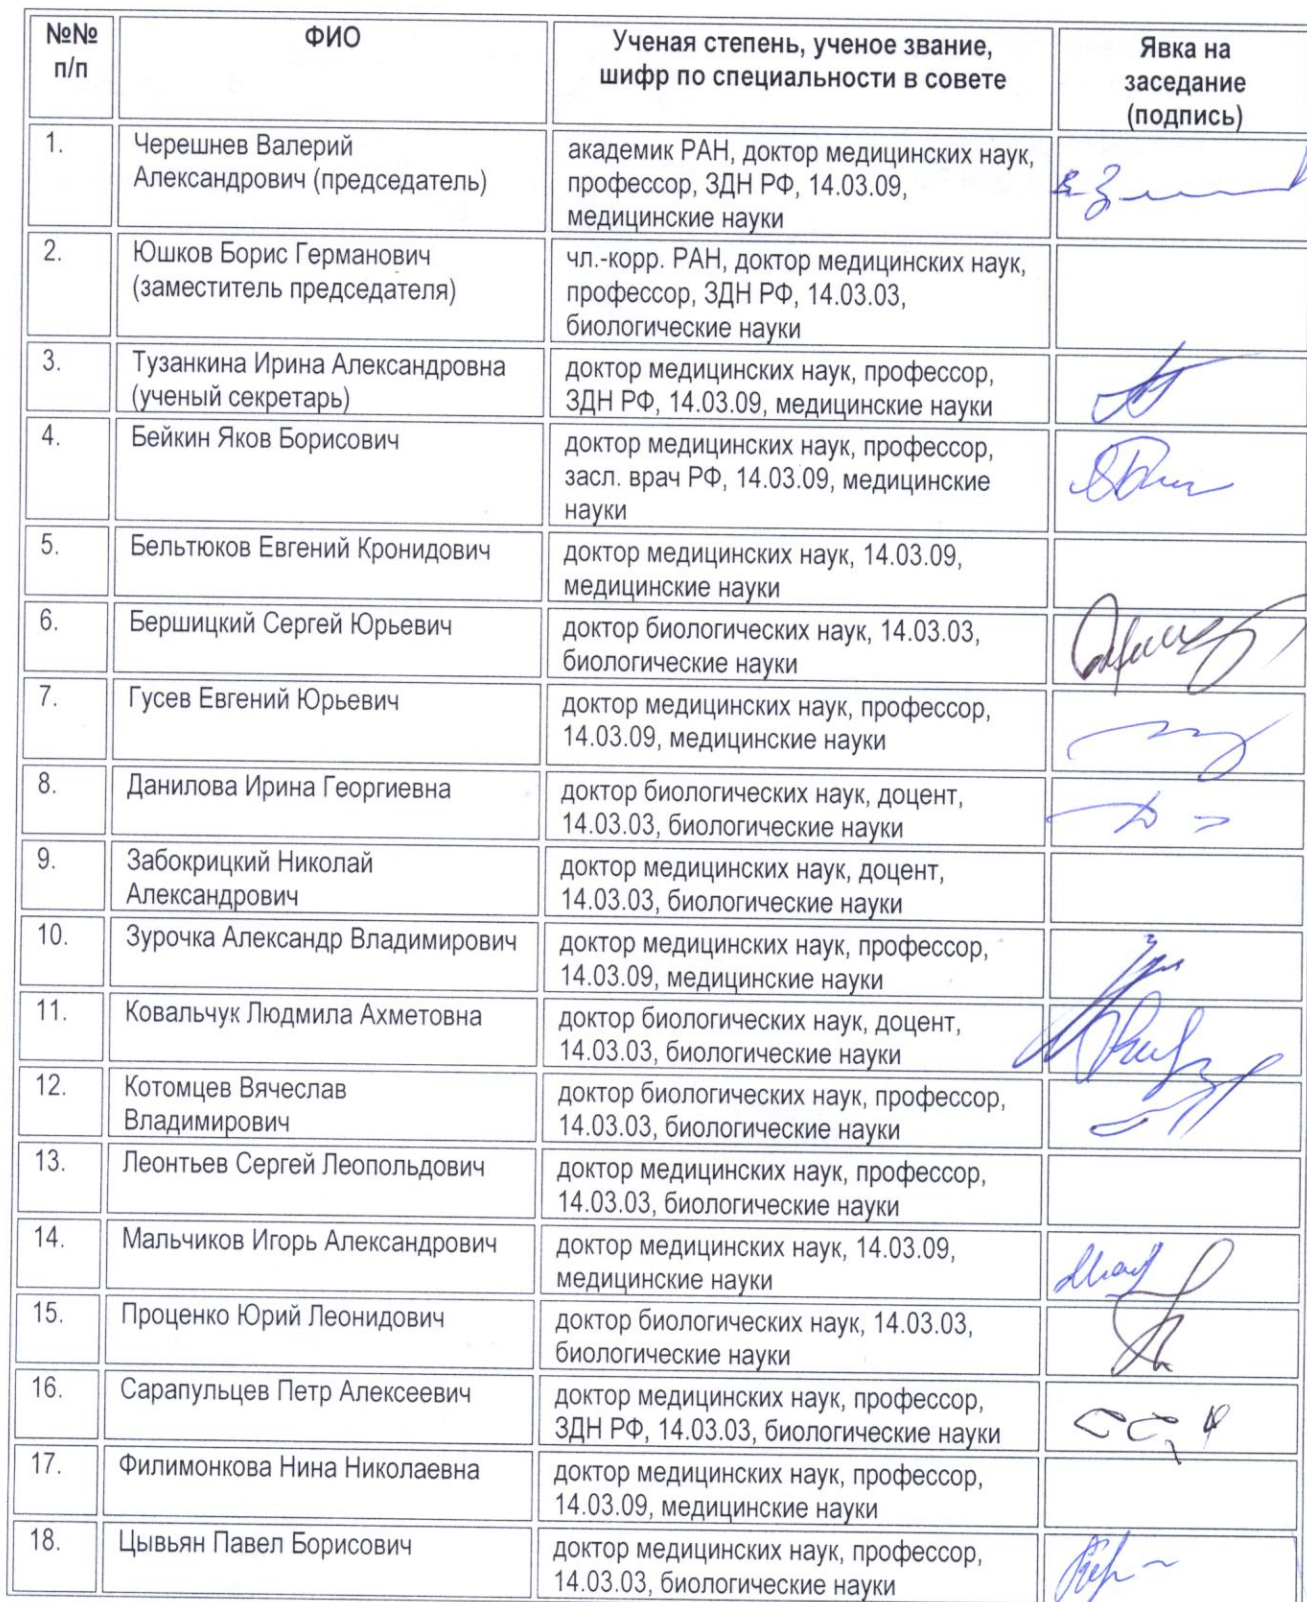 №№
п/п
ФИО
Ученая степень, ученое звание,
шифр по специальности в совете
Явка на
заседание
(подпись)
1.
Черешнев Валерий
Александрович (председатель)
академик РАН, доктор медицинских наук,
профессор, ЗДН РФ, 14.03.09,
медицинские науки
2.
Юшков Борис Германович
(заместитель председателя)
чл.-корр. РАН, доктор медицинских наук,
профессор, ЗДН РФ, 14.03.03,
биологические науки
3.
Тузанкина Ирина Александровна
(ученый секретарь)
доктор медицинских наук, профессор,
ЗДН РФ, 14.03.09, медицинские науки
4.
Бейкин Яков Борисович
доктор медицинских наук, профессор,
засл. врач РФ, 14.03.09, медицинские
науки
5.
Бельтюков Евгений Кронидович
доктор медицинских наук, 14.03.09,
медицинские науки
6.
Бершицкий Сергей Юрьевич
доктор биологических наук, 14.03.03,
биологические науки
7.
Гусев Евгений Юрьевич
доктор медицинских наук, профессор,
14.03.09, медицинские науки
8.
Данилова Ирина Георгиевна
доктор биологических наук, доцент,
14.03.03, биологические науки
9.
Забокрицкий Николай
Александрович
доктор медицинских наук, доцент,
14.03.03, биологические науки
10.
Зурочка Александр Владимирович
доктор медицинских наук, профессор,
14.03.09, медицинские науки
11.
Ковальчук Людмила Ахметовна
доктор биологических наук, доцент,
14.03.03, биологические науки
12.
Котомцев Вячеслав
Владимирович
доктор биологических наук, профессор,
14.03.03, биологические науки
13.
Леонтьев Сергей Леопольдович
доктор медицинских наук, профессор,
14.03.03, биологические науки
14.
Мальчиков Игорь Александрович
доктор медицинских наук, 14.03.09,
медицинские науки
15.
Проценко Юрий Леонидович
доктор биологических наук, 14.03.03,
биологические науки
16.
Сарапульцев Петр Алексеевич
доктор медицинских наук, профессор,
ЗДН РФ, 14.03.03, биологические науки
17.
Филимонкова Нина Николаевна
доктор медицинских наук, профессор,
14.03.09, медицинские науки
18.
Цывьян Павел Борисович
доктор медицинских наук, профессор,
14.03.03, биологические науки